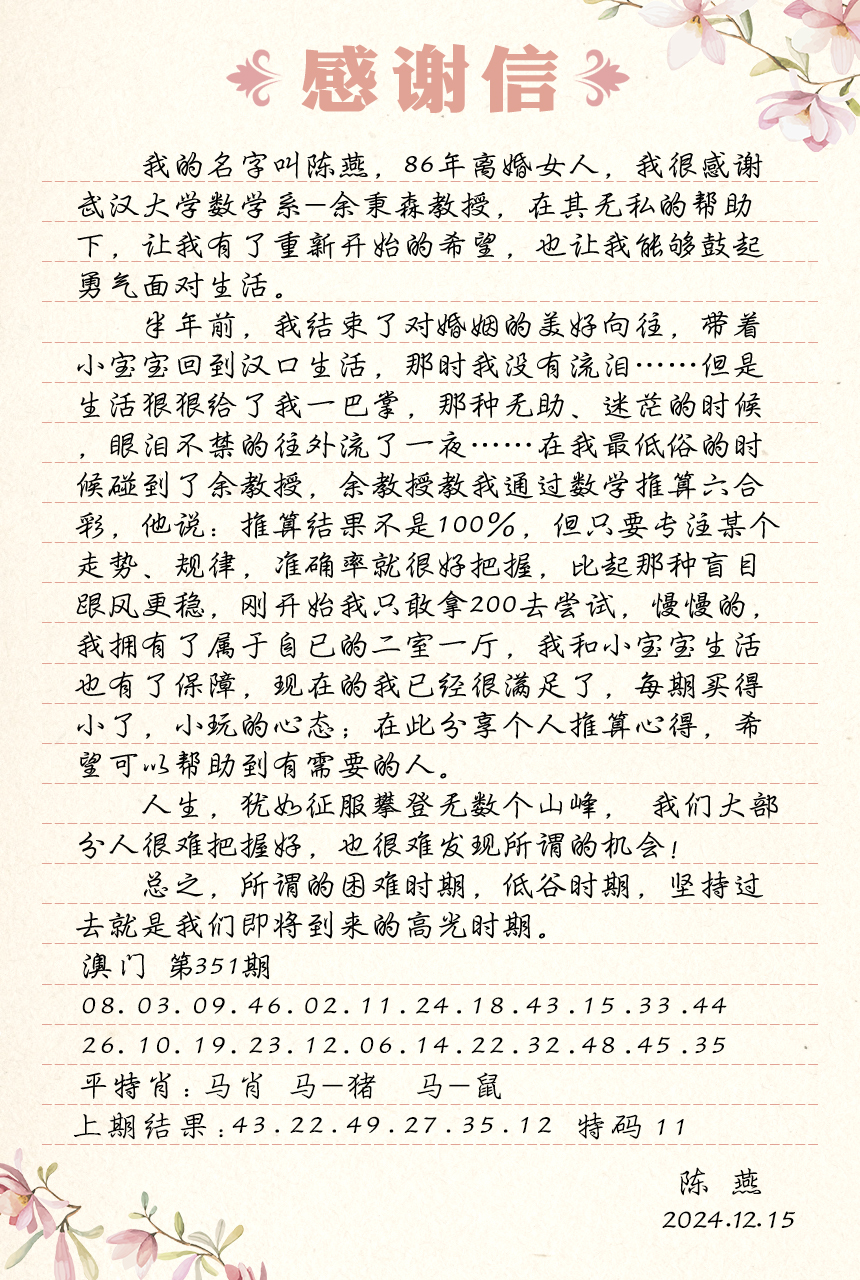 感谢信
我的名字叫陈燕，86年离婚女人，我很感谢
武汉大学数学系—余秉森教授，在其无私的帮助
下，让我有了重新开始的希望，也让我能够鼓起
勇气面对生活。
半年前，我结束了对婚姻的美好向往，带着
小宝宝回到汉口生活，那时我没有流泪……但是
生活狠狠给了我一巴掌，那种无助、迷茫的时候
，眼泪不禁的往外流了一夜……在我最低俗的时
候碰到了余教授，余教授教我通过数学推算六合
彩，他说：推算结果不是100%，但只要专注某个
走势、规律，准确率就很好把握，比起那种盲目
跟风更稳，刚开始我只敢拿200去尝试，慢慢的，
我拥有了属于自已的二室一厅，我和小宝宝生活
也有了保障，现在的我已经很满足了，每期买得
小了，小玩的心态；在此分享个人推算心得，希
望可以帮助到有需要的人。
人生，犹如征服攀登无数个山峰， 我们大部
分人很难把握好，也很难发现所谓的机会！
总之，所谓的困难时期，低谷时期，坚持过
去就是我们即将到来的高光时期。
澳门 第351期
08.03.09.46.02.11.24.18.43.15.33.44
26.10.19.23.12.06.14.22.32.48.45.35
平特肖：马肖 马—猪 马—鼠
上期结果：43.22.49.27.35.12 特码 11
陈 燕
2024.12.15